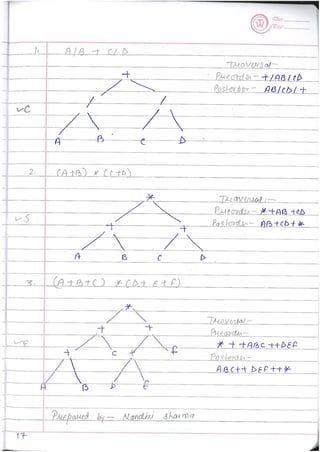 1. A/B + C/D
Traversal-
+
Preorder- +/AB/CD
Postorder- AB/CD/+
/ /
C
A B C D
2. (A+B) * (C+D)
Traversal:-
*
Preorder- *+AB+CD
Postorder- AB+CD+*
+ +
S
A B C D
3. (A+B+C) * (D+E+F)
*
Traversal-
+ +
Preorder-
* ++ABC ++DEF
E
+ C + F
Postorder-
ABC++ DEF++*
A B D E
Prepared by- Nandini Sharma
17